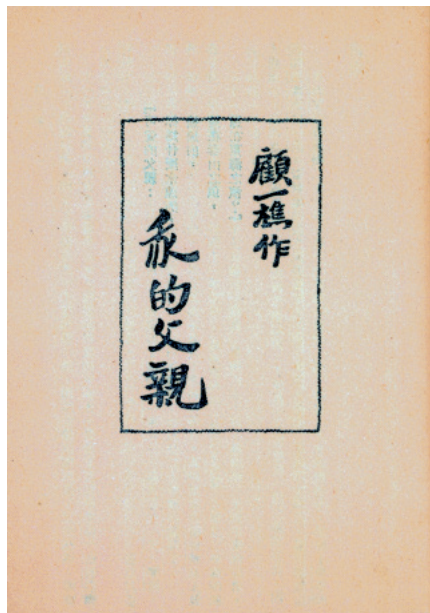 顧一樵作
我的父親